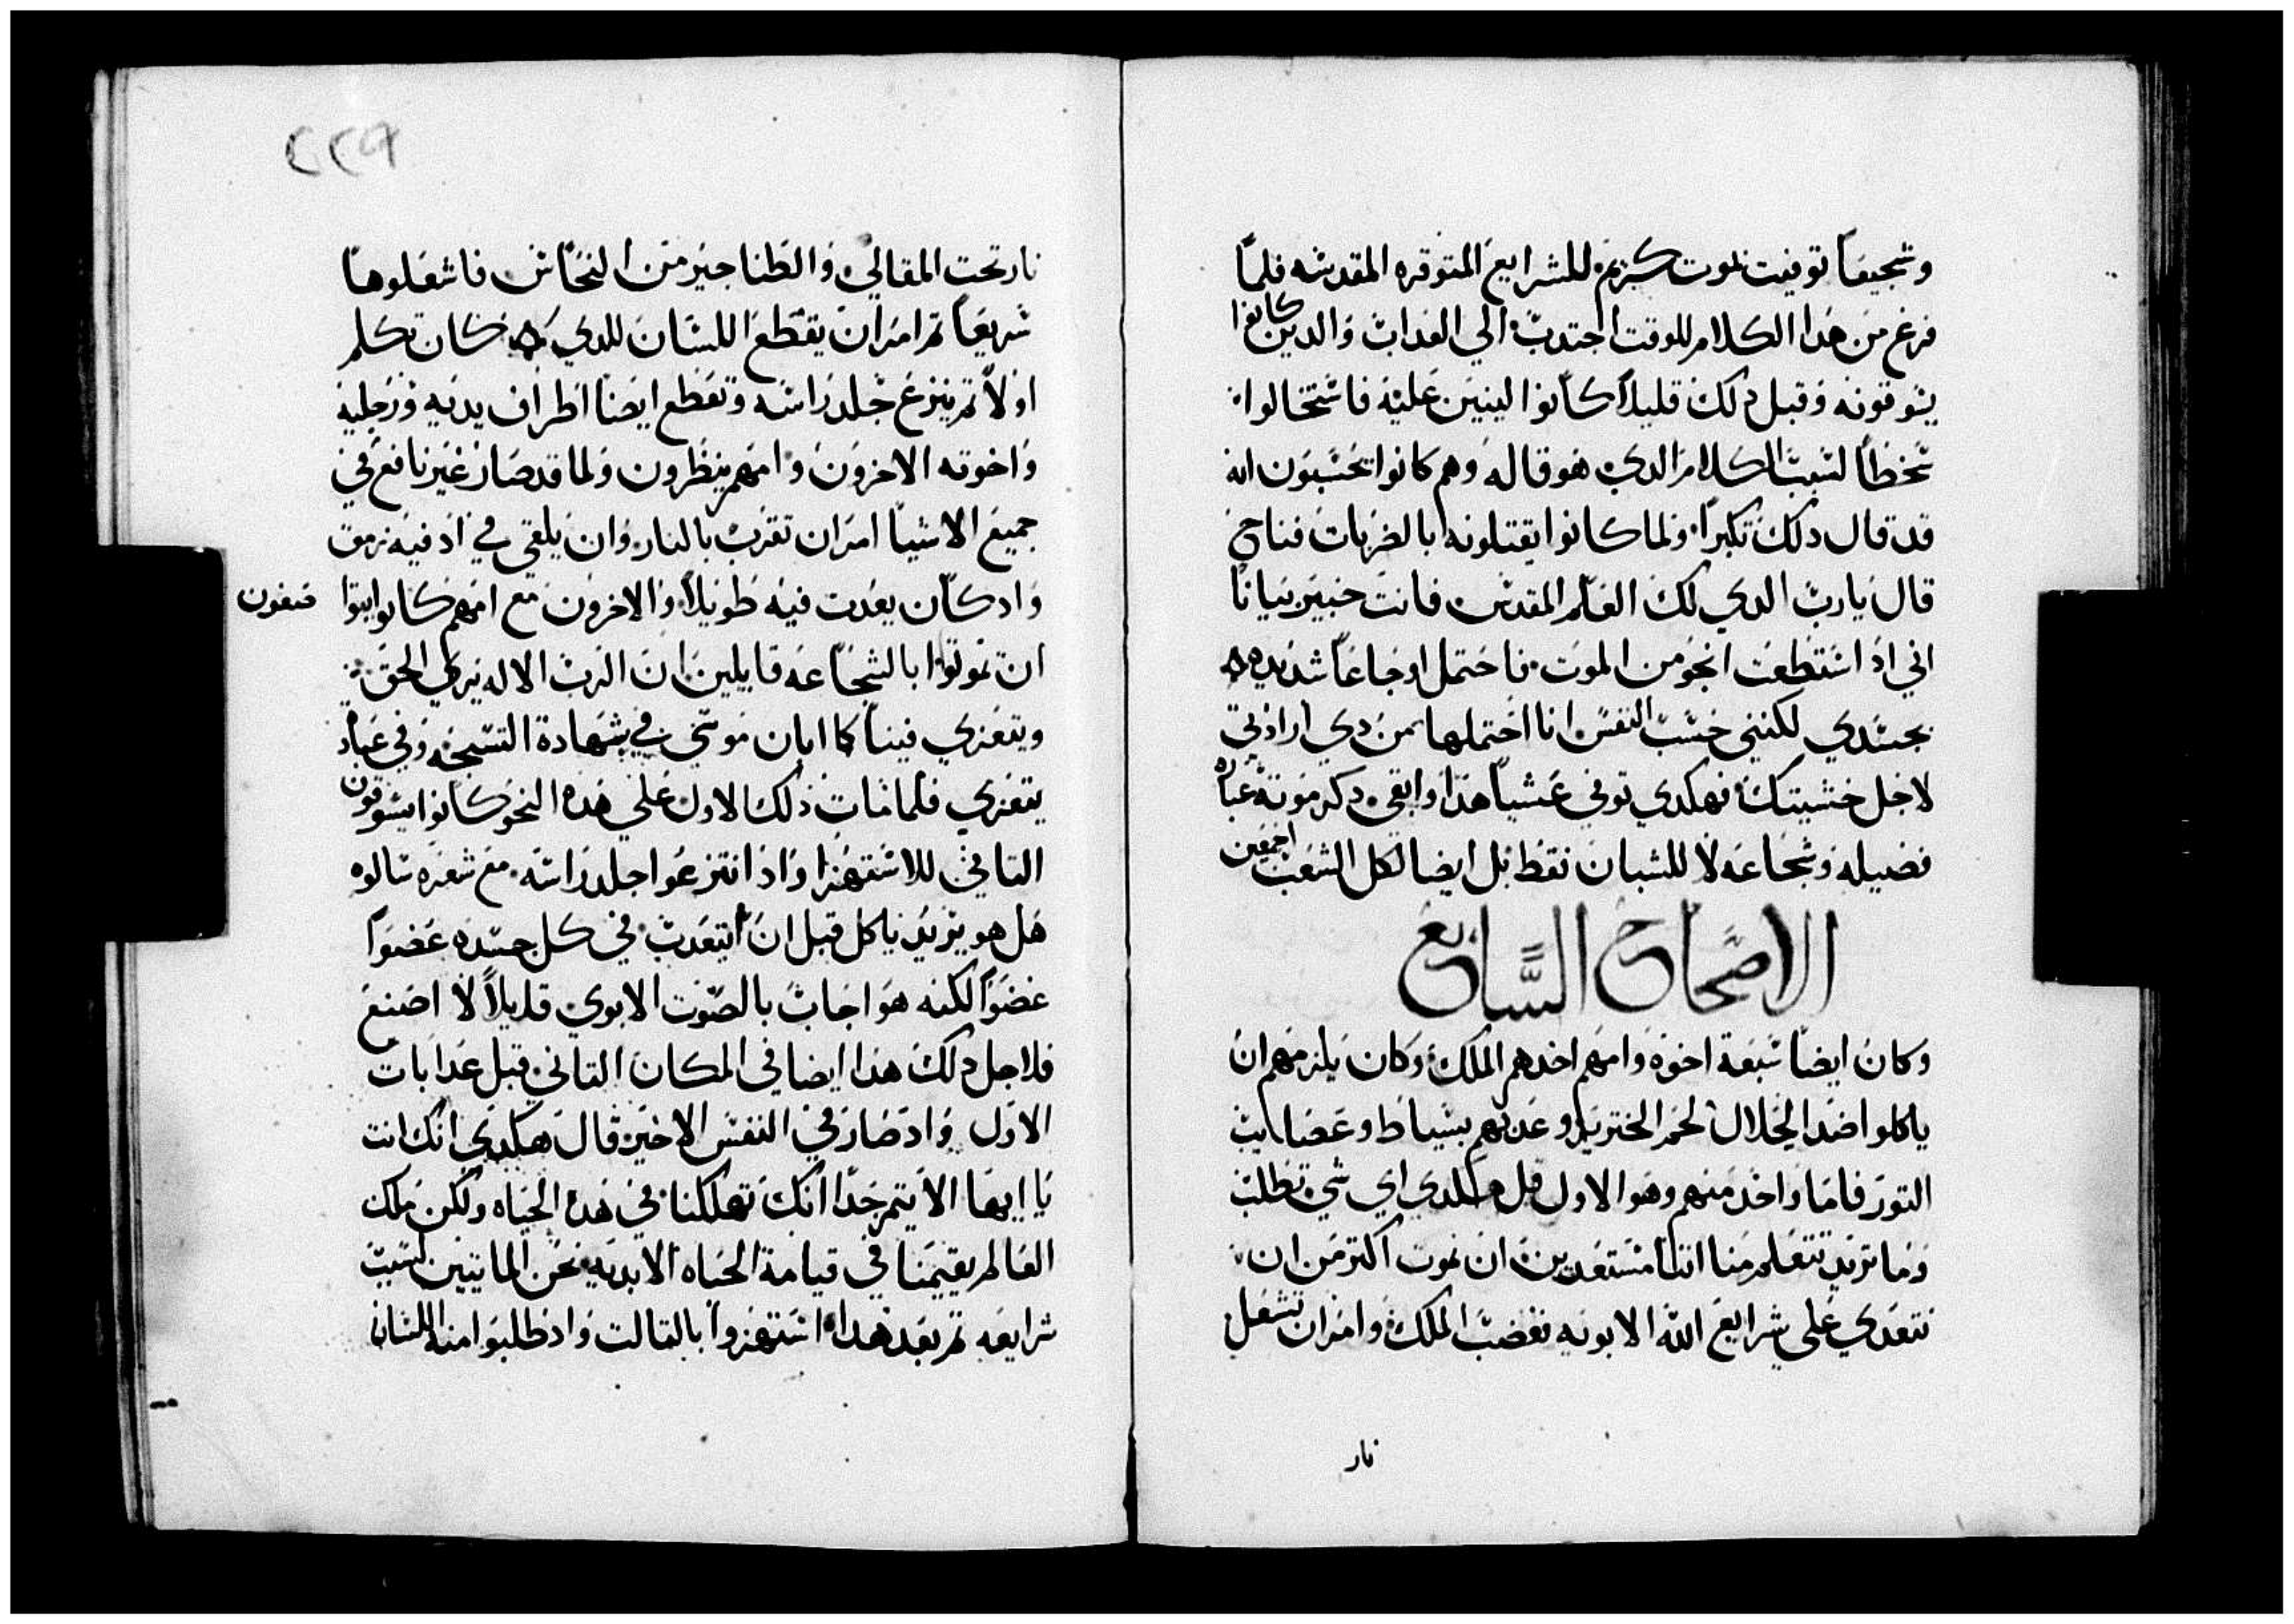 وشجيعاً توفيت بموت كريم للشرايع المتوقره المقدسه فلما
فرغ من هذا الكلام للوقت اجتدب الي العداب والدين كانوا
يسوقونه وقبل دلك قليلاً كانوا لينين عليه فاستحالوا
سخطاً لسبب الكلام الدي هو قاله وهم كانوا يحسبون انه
قد قال دلك تكبراً ولما كانوا يقتلونه بالضربات فناح
قال يارب الدي لك العلم المقدس فانت خبير بيانا
اني اد استطعت انجو من الموت فاحتمل اوجاعاً شديده
بجسدي لكنني حسب النفس انا احتملها بمن دي ارادتي
لاجل خشيتك فهكدي توفي عشياً هدا وابقي دكر موته عباره
فضيله وشجاعه لا للشبان فقط بل ايضا لكل الشعب اجمعين
الاصحاح السابع
وكان ايضاً سبعة اخوه وامهم اخدهم الملك وكان يلزمهم ان
ياكلوا ضد الحلال لحم الخنزير وعدبهم بسياط وعصايب
التور فاما واحد منهم وهو الاول قال هكدي اي شي تطلب
وما تريد تتعلم منا اننا مستعدين ان نموت اكتر من ان
نتعدي علي شرايع الله الابويه فغضب الملك وامر ان تشعل
نار
٢٢٩
نار تحت المقالي والطناجير من النحاس فاشعلوها
سريعاً تم امر ان يقطع اللسان للدي كان تكلم
اولاً تم ينزع جلد راسه وتقطع ايضا اطراف يديه ورجليه
واخوته الاخرون وامهم ينظرون ولما قد صار غير نافع في
جميع الاشيا امر ان تقرب بالنار وان يلقي في اد فيه نرمق
واد كان يعدب فيه طويلاً والاخرون مع امهم كانوا ايتوا
متفون
ان تموتوا بالشجاعه قايلين ان الرب الاله يري الحق
ويتعزي فينا كما ابان موسي في شهادة التسبحه وفي عباد
يتعزي فلما مات دلك الاول علي هده النحو كانوا يسوقون
التاني للاستهزا واد انتزعوا جلد راسه مع شعره سالوه
هل هو يريد ياكل قبل ان يتعدب في كل جسده عضواً
عضواً لكنه هو اجاب بالصوت الابوي قايلاً لا اصنع
فلاجل دلك هدا ايضا في المكان التاني قبل عدابات
الاول واد صار في النفس الاخير قال هكدي انك انت
يا ايها الاتيم جداً انك تهلكنا في هده الحياه ولكن ملك
العالم يقيمنا في قيامة الحياه الابديه نحن المايتين لسبب
شرايعه تم بعد هدا استهزوا بالتالت واد طلبوا منه اللسان